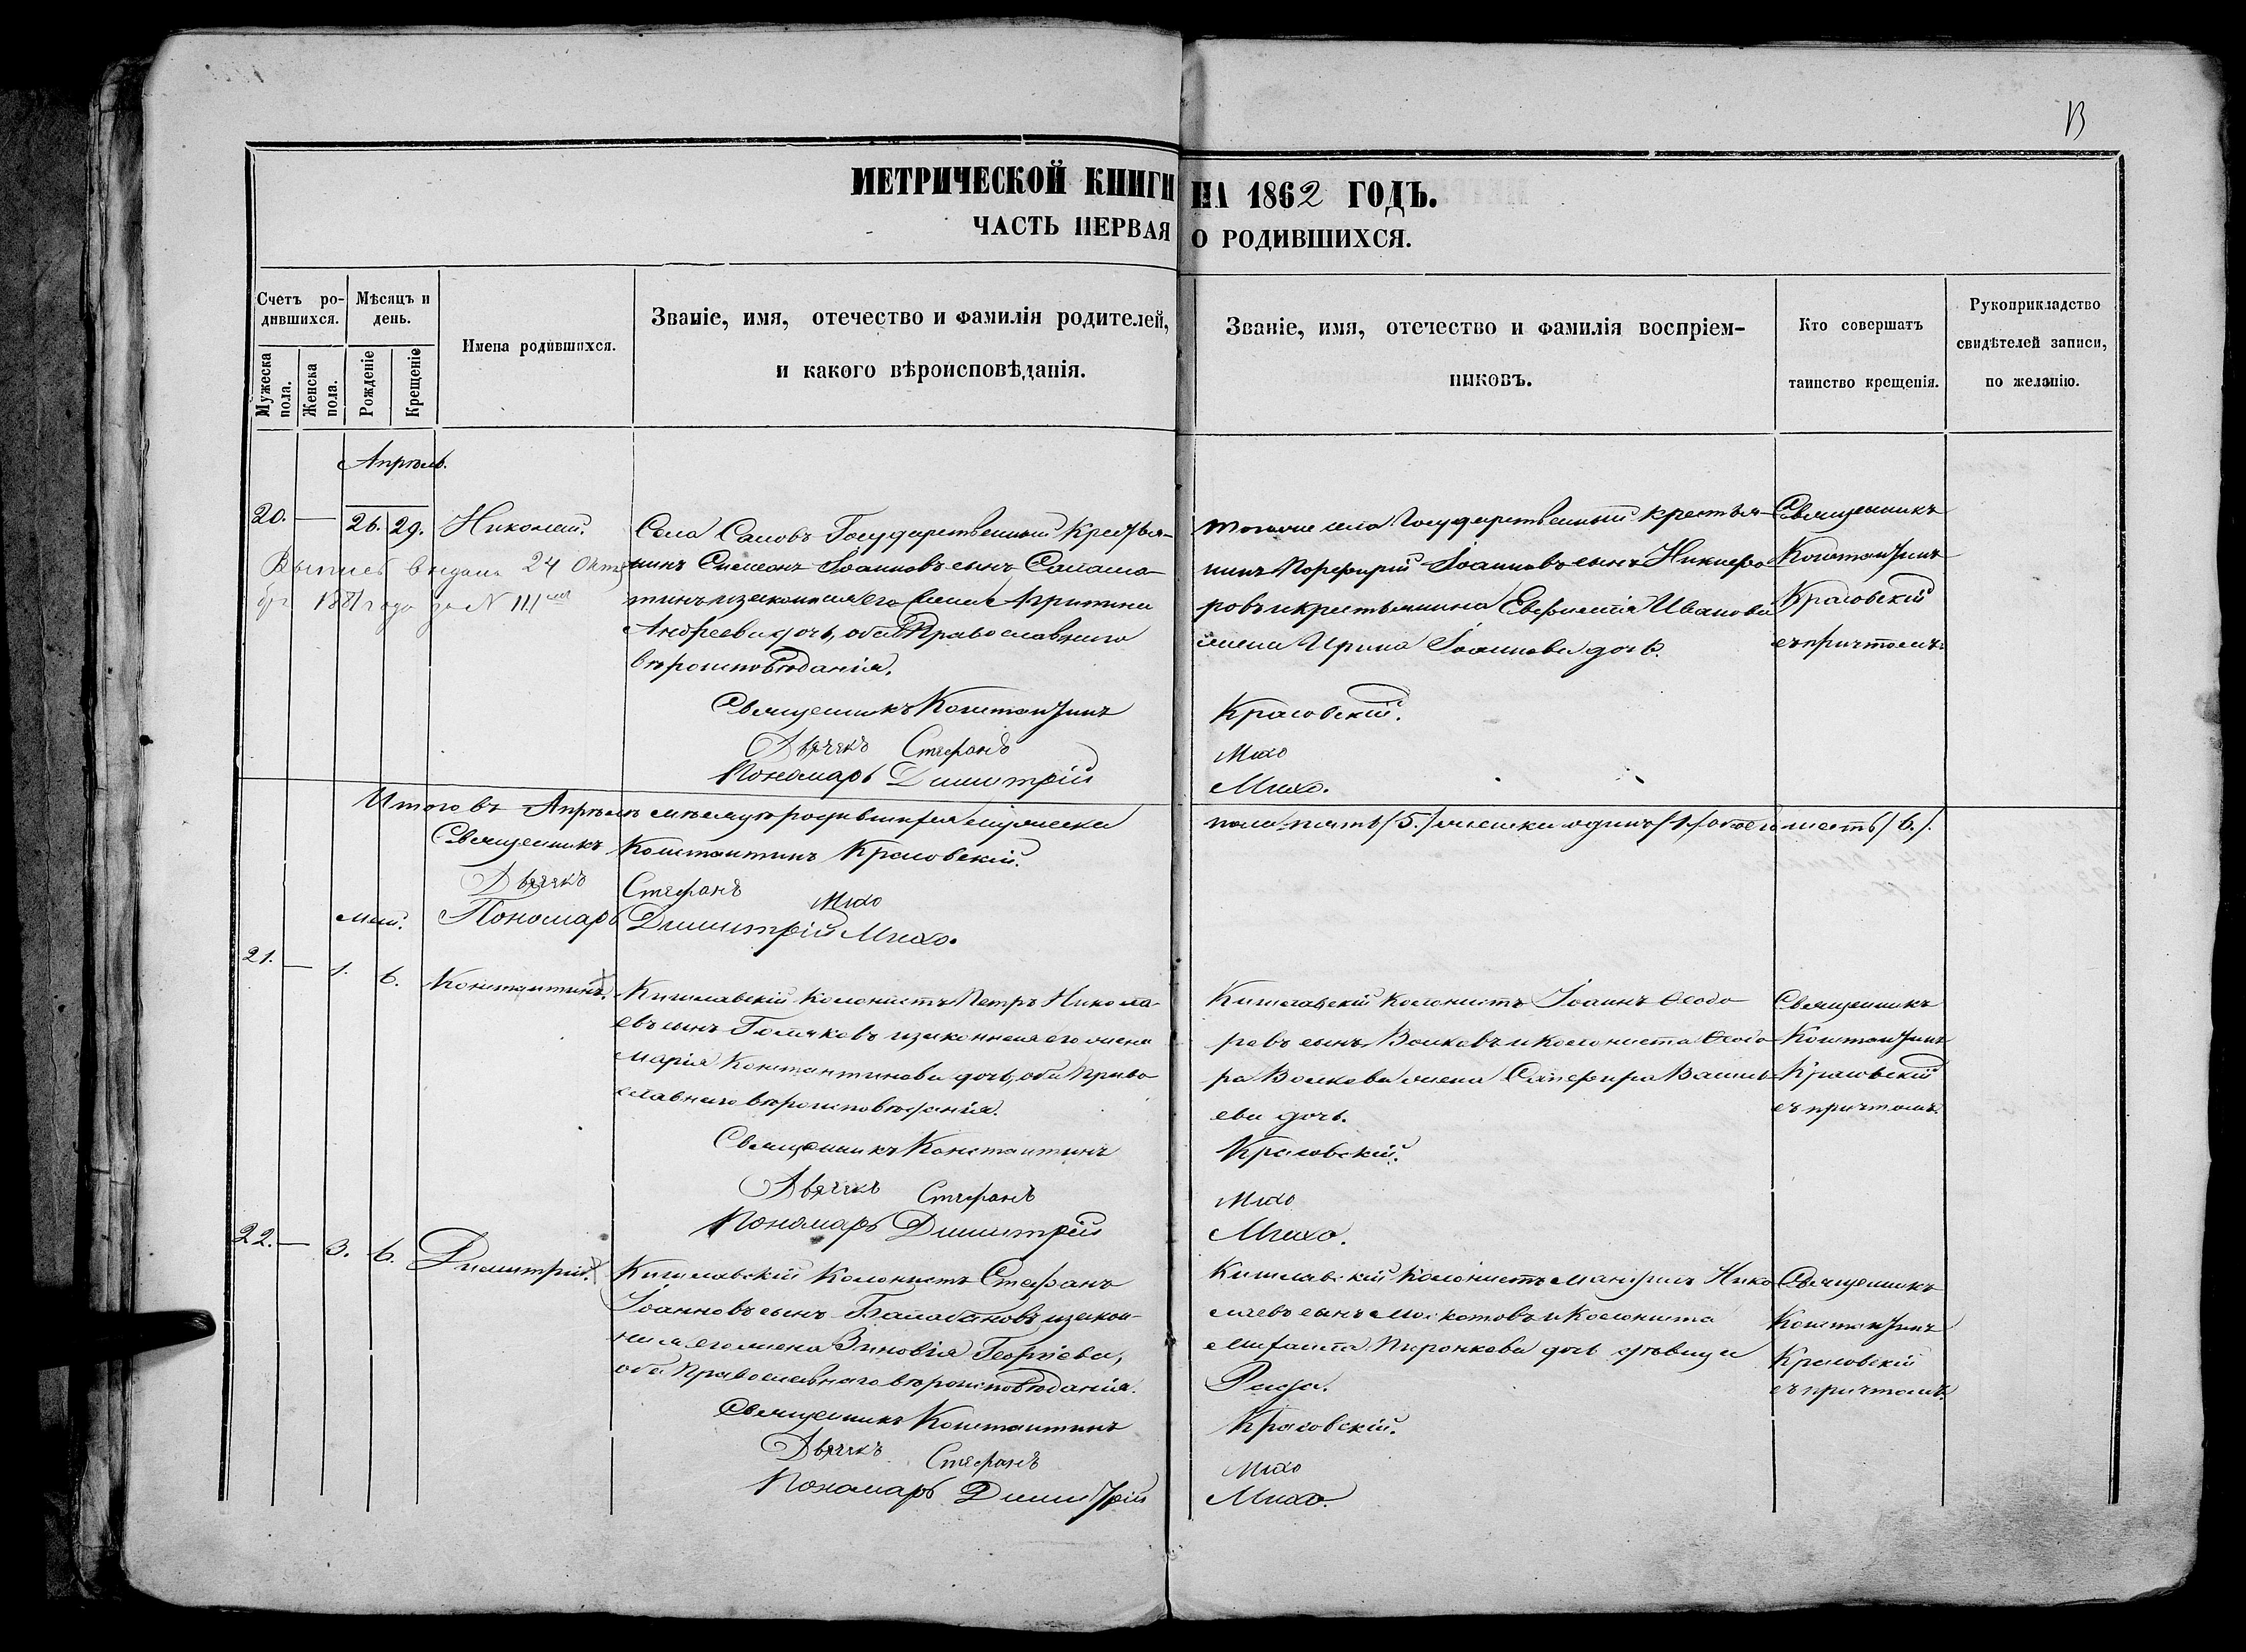 МЕТРИЧЕСКОЙ КНИГИ НА 1862 ГОДЪ.
ЧАСТЬ ПЕРВАЯ О РОДИВШИХСЯ.
Счетъ ро-
дившихся.
Мужеска пола.
Женска пола.
Мѣсяцъ и
день.
Рожденіе
Крещеніе
Имена родившихся.
Званіе, имя, отечество и фамилія родителей,
и какого вѣроисповѣданія.
Званіе, имя, отечество и фамилія воспріем-
никовъ.
Кто совершатъ
таинство крещенія.
Рукоприкладство
свидѣтелей записи,
по желанію.
Апрѣль.
20. — 26. 29. Николай.
Выпись выдана 24 Октя
бря 1881 года за №
Села Государственный Крестья-
нинъ Симеонъ Іоанновъ сынъ
законная его жена Агрипина
Андреева дочь, оба Православнаго
вѣроисповѣданія.
Священникъ Константинъ
Дьячекъ Стефанъ
Пономарь Димитрій
тогоже села Государственный крестья-
нинъ Порфирій Іоанновъ сынъ
и крестьянина Иванова
жена Ирина Іоаннова дочь.
Красовскій.
Михо
Михо.
Священникъ
Константинъ
Красовскій
съ причтомъ.
Итого въ Апрѣлѣ мѣсяцѣ родившихся мужеска
пола пять /5./ женска одинъ /1./ обоего шесть /6./.
Священникъ Константинъ Красовскій.
Дьячекъ Стефанъ Михо
Пономарь Димитрій Михо.
Май.
21. — 1. 6. Константинъ.
колонистъ Петръ Никола-
евъ сынъ законная его жена
Марія Константинова дочь, оба Право-
славнаго вѣроисповѣданія.
Священникъ Константинъ
Дьячекъ Стефанъ
Пономарь Димитрій
колонистъ Іоаннъ Ѳеодо-
ровъ сынъ Волковъ и колониста Ѳеодо-
ра Волкова жена Василь-
ева дочь.
Красовскій.
Михо
Михо.
Священникъ
Константинъ
Красовскій
съ причтомъ.
22. — 3. 6. Димитрій.
Колонистъ Стефанъ
Іоанновъ сынъ Балабановъ, закон-
ная его жена Зиновія Георгіева,
оба Православнаго вѣроисповѣданія.
Священникъ Константинъ
Дьячекъ Стефанъ
Пономарь Димитрій
Колонистъ Нико-
лаевъ сынъ и колониста
дочь дѣвица
Красовскій.
Михо
Михо.
Священникъ
Константинъ
Красовскій
съ причтомъ.